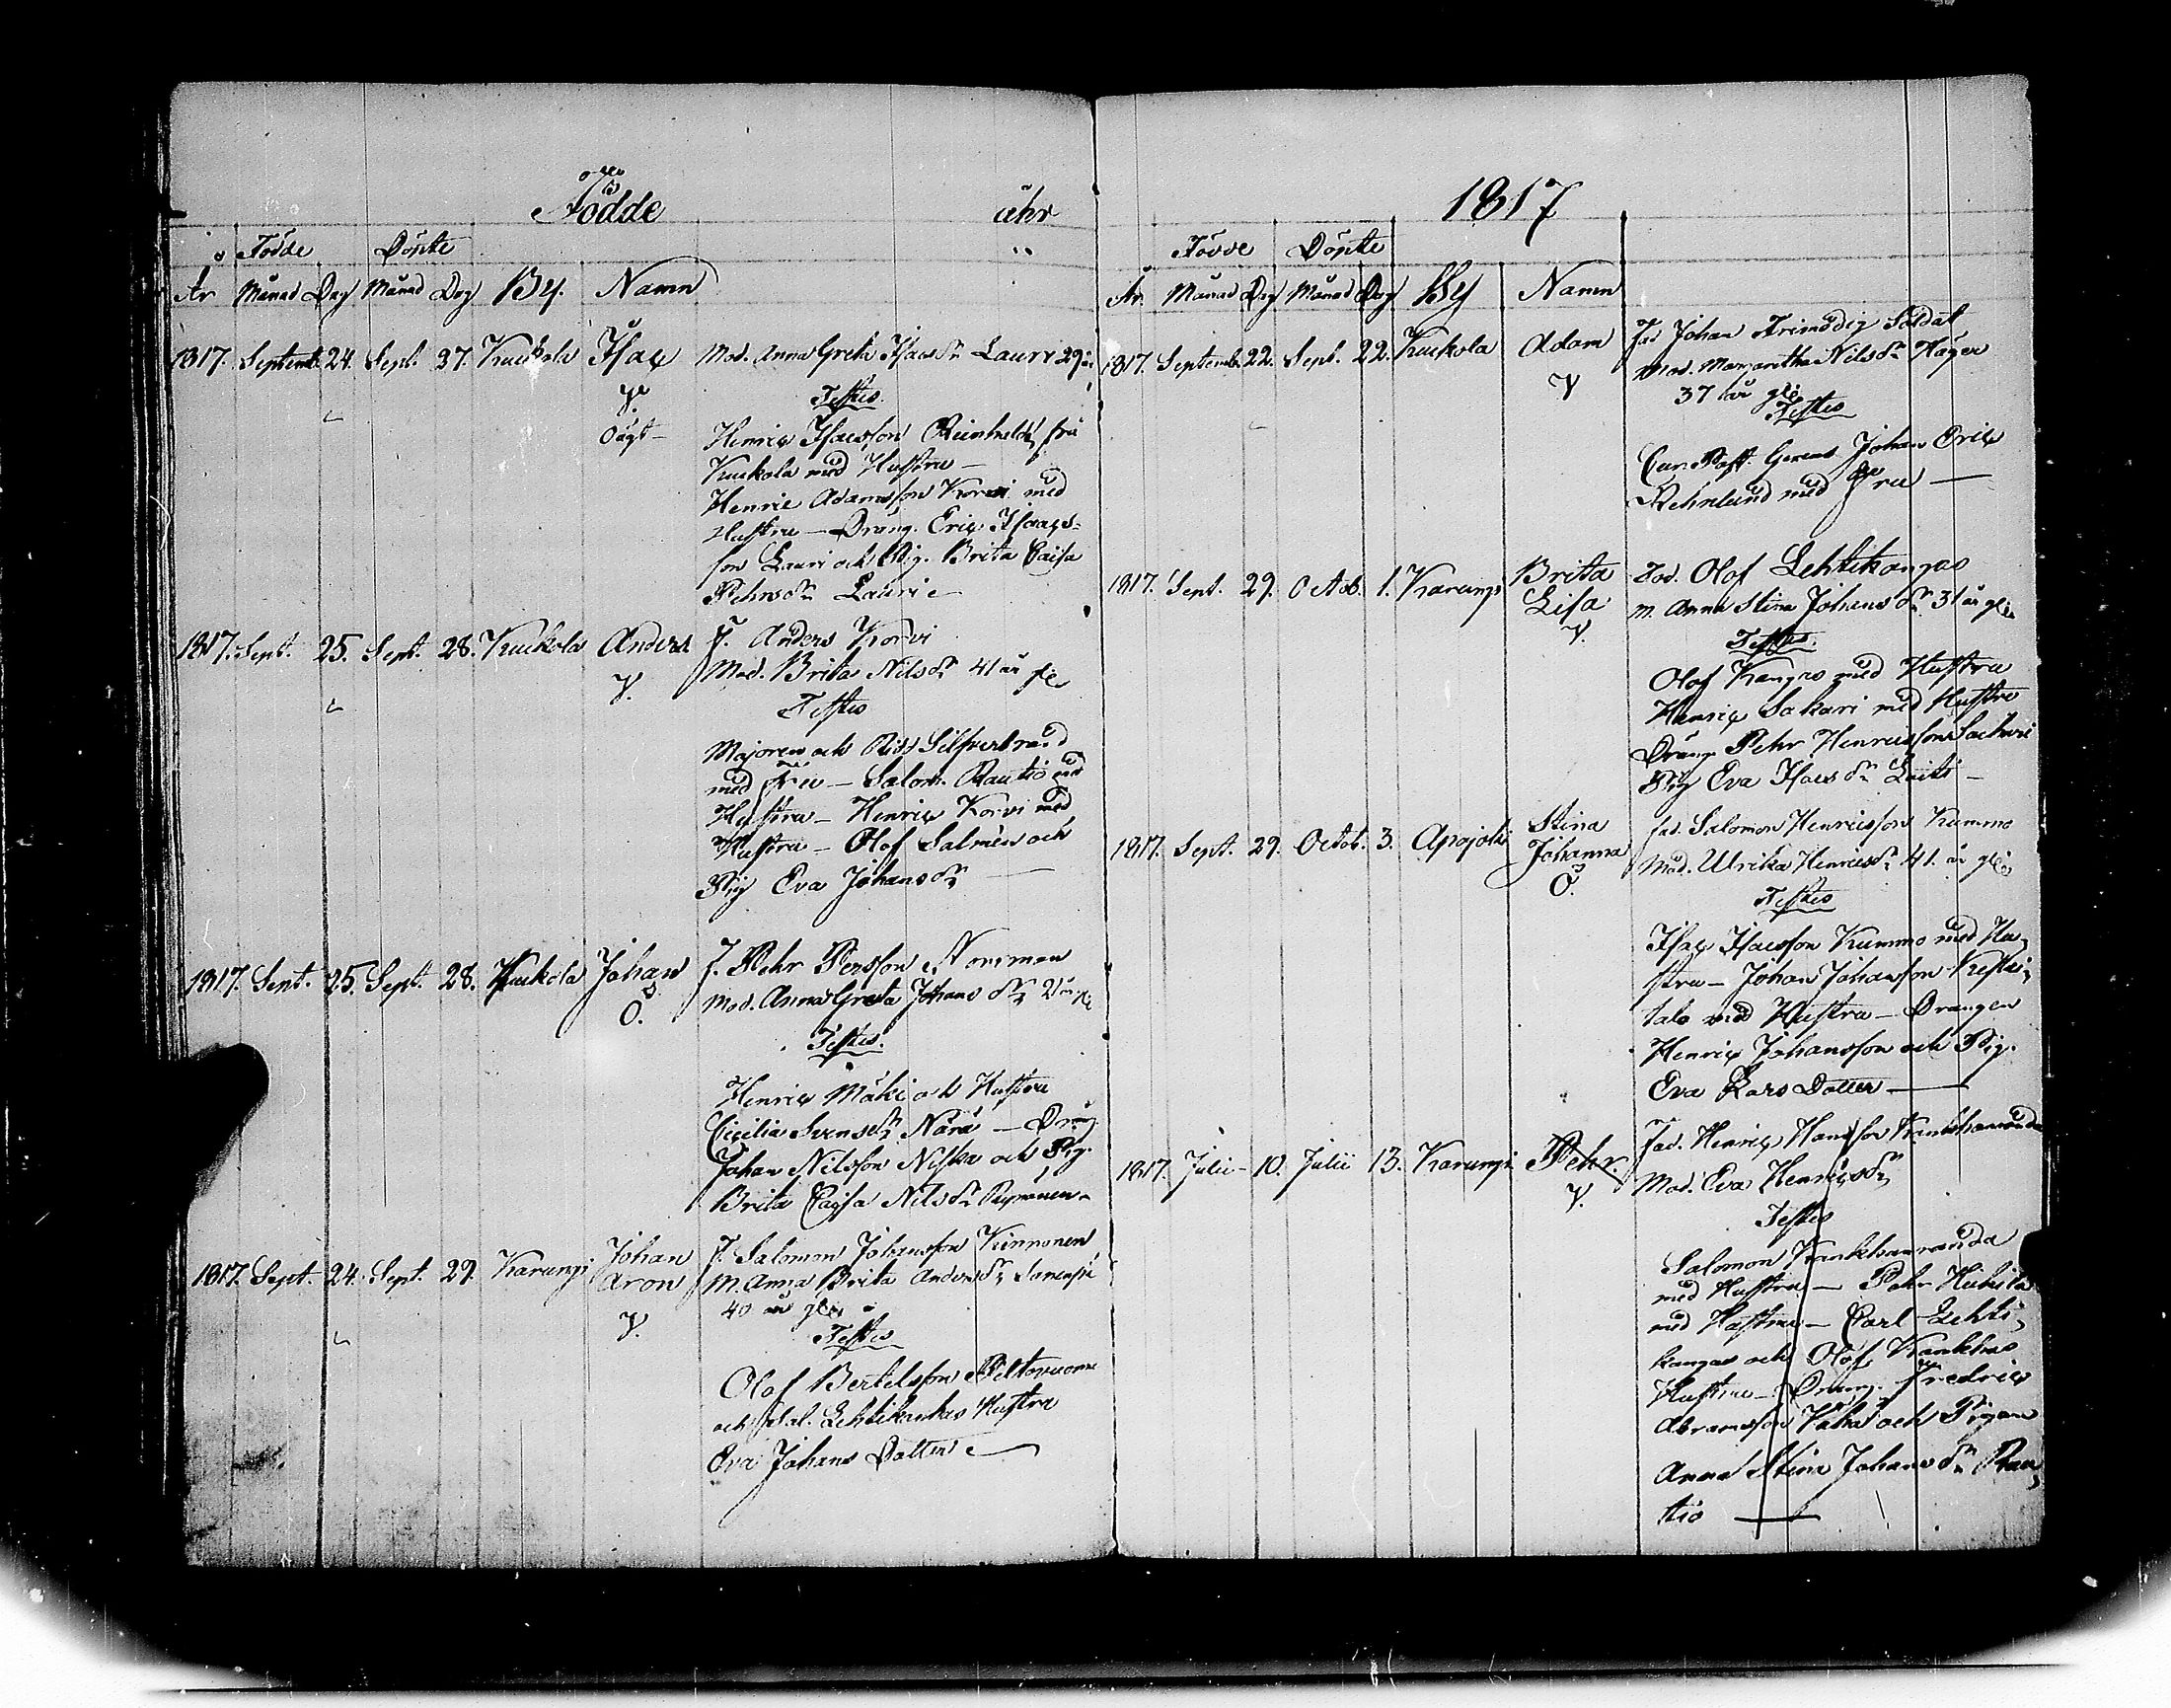 Födde åhr
Födde Döpte
År Månad Dag Månad Dag By. Namn
1817. Septemb. 24. Sept. 27. Kuckola Isac Mod. Anna Greta Isacsdr Lauri 29 år
V. Testes.
Oägt Henric Isacsson
Kuckola med Hustru
Henric Adamsson Korvi med
Hustru – Dräng. Eric Isacs-
son Lauri och Pig. Brita Caisa
Pehrsdr Lauri
1817. Sept. 25. Sept. 28. Kuckola Anders F. Anders Korvi
V. Mod. Brita Nilsdr 41 år
Testes
Majoren och Ridd Silfverbrand
med Fru – Salom. Rautio med
Hustru – Henric Korvi med
Hustru – Olof Salmén och
Pig Eva Johansdr
1817. Sept. 25. Sept. 28. Kuckola Johan F. Pehr Persson Norimen
O. Mod. Anna Greta Johansdr
Testes.
Henric Mäki och Hustru
Cicilia Svensdr Nara – Dräng
Johan Nilsson Niska och Pig.
Brita Cajsa Nilsdr
1817. Sept. 24. Sept. 29. Karungi Johan F. Salomon Johansson Kinnonen
Aron M. Anna Brita Andersdr
V. 40 år
Testes
Olof Bertelsson Peltovuoma
och Sal. Lehtikankas Hustru
Eva Johans Dotter
1817
Födde Döpte
År. Månad Dag Månad Dag By Namn
1817. Septemb. 22. Sept. 22. Kuckola Adam Fad Johan Frimodig Soldat
V Mod. Margaretha Nilsdr Häger
37 år
Testes
Cur. Past. Gerens Johan Eric
Rehnlund med Fru
1817. Sept. 29. Octob. 1. Karungi Brita Fad. Olof Lehtikangas
Lisa M. Anna Stina Johansdr 31 år
V. Testes.
Olof Kangas med Hustru
Henric Sakari med Hustru
Dräng Pehr Henricsson
Pig Eva Isacsdr
1817. Sept. 29. Octob. 3. Apojoki Stina Fad. Salomon Henricsson Kummo
Johanna Mod. Ulrika Henricsdr 41. år
O. Testes
Isac Isacsson Kummo med Hu-
stru – Johan Johansson Keski-
talo med Hustru – Drängen
Henric Johansson och Pig.
Eva Lars Dotter
1817. Julii 10. Julii 13. Karungi Pehr. Fad. Henric Hansson Kankhanranda
V. Mod. Eva Henricsdr
Testes
Salomon Kankhanranda
med Hustru – Pehr
med Hustru – Carl Lehti-
kangas och Olof Kankhas
Hustru – Dräng. Fredric
Abramsson Vähä och Pigan
Anna Stina Johansdr Rau-
tio